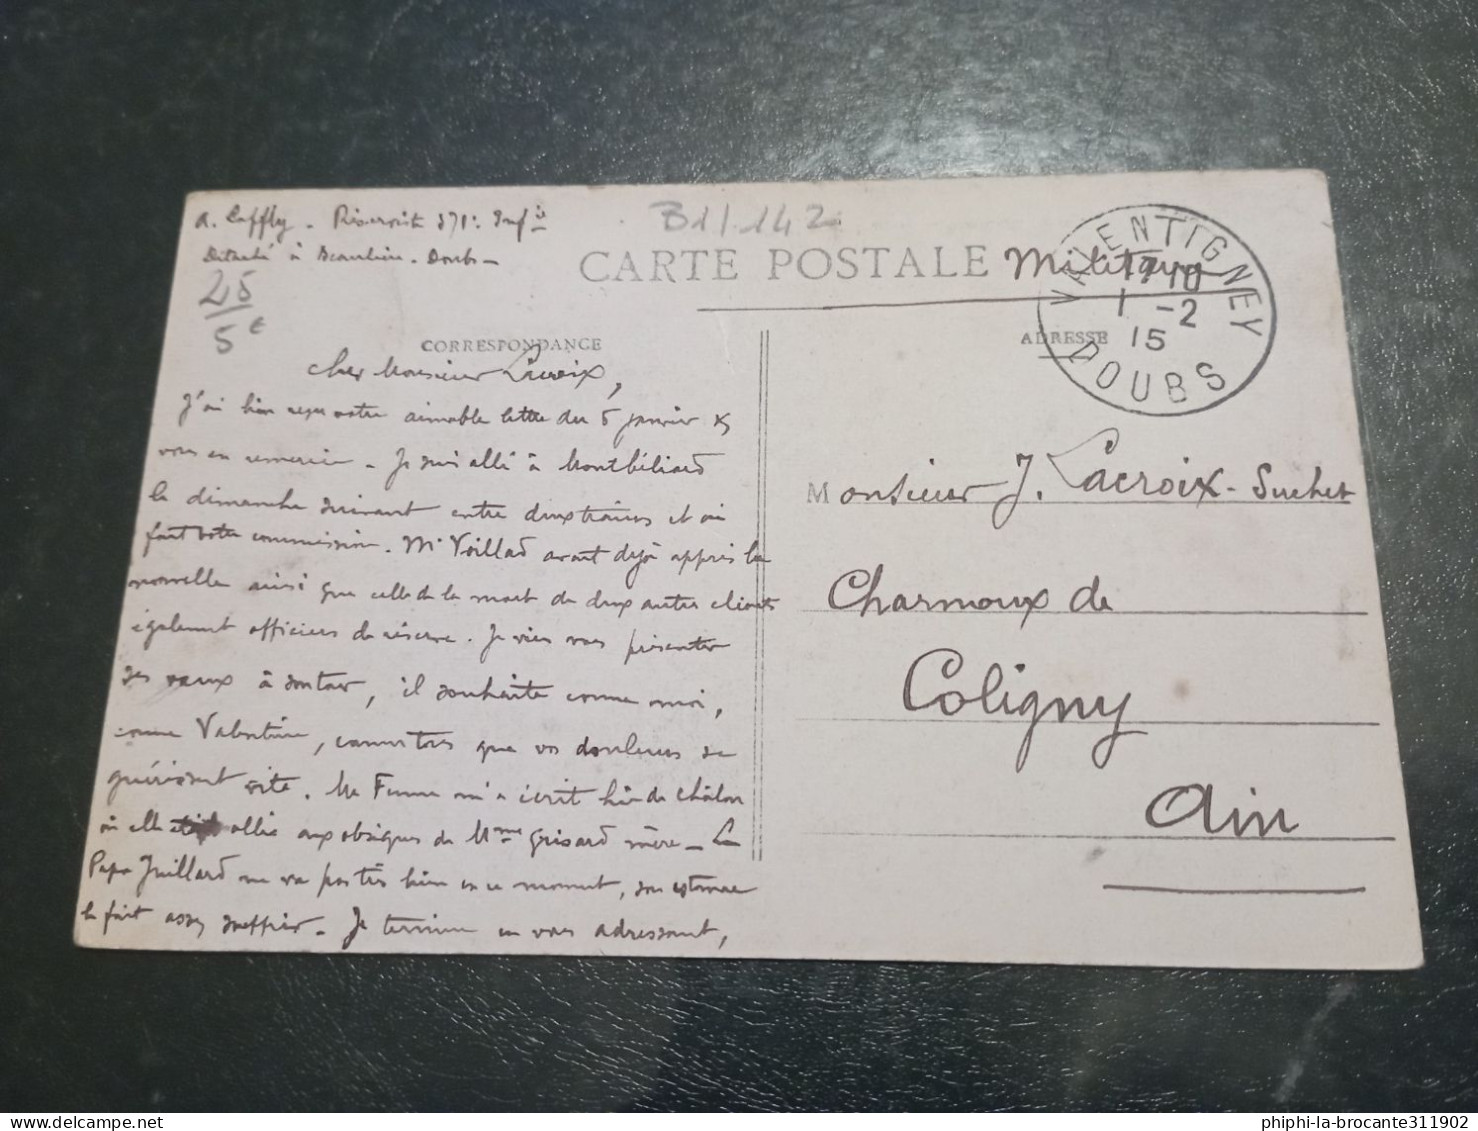 A. Laffly. Réserviste 371e Inf ie
Détaché à Beaulieu - Doubs -
B11.142
25
5 €
CARTE POSTALE Militaire
VALENTIGNEY
17-10
1 -2
15
DOUBS
CORRESPONDANCE
ADRESSE
Cher Monsieur Lacroix,
J'ai bien reçu votre aimable lettre du 5 janvier &
vous en remercie. Je suis allé à Montbéliard
le dimanche suivant entre deux trains et ai
fait votre commission. Mr Voillard avait déjà appris la
nouvelle ainsi que celle de la mort de deux autres clients
également officiers de réserve. Je viens vous présenter
ses vœux à , il souhaite comme moi,
comme Valentine, que vos douleurs se
guérissent vite. Ma Femme m'a écrit hier de Châlon
où elle allée aux obsèques de Mme Grisard mère - Le
Papa Juillard ne va pas très bien en ce moment, son estomac
le fait assez souffrir. Je termine en vous adressant,
Monsieur J. Lacroix-Suchet
Charmoux de
Coligny
Ain
delcampe.net
phiphi-la-brocante311902